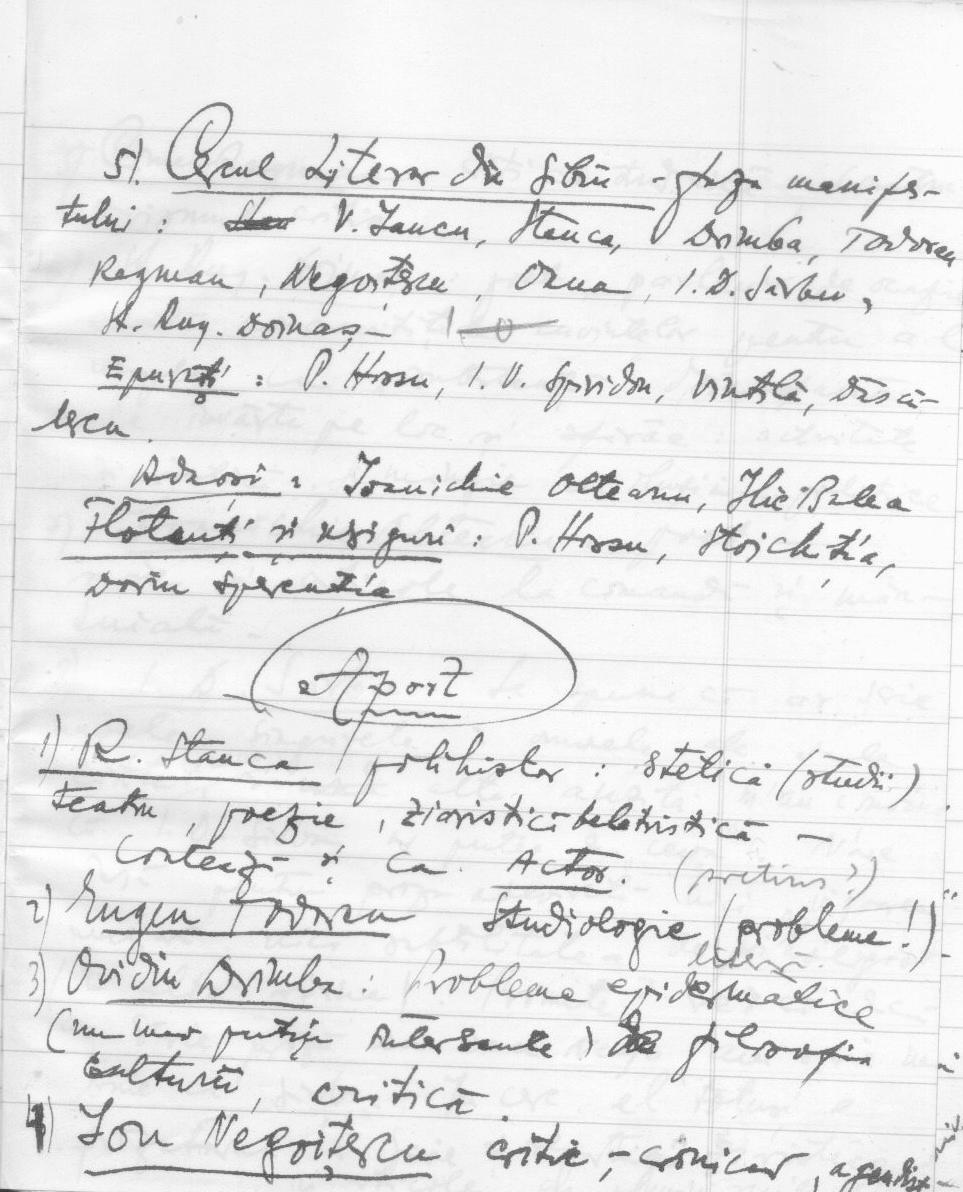 5). Cercul Literar din Sibiu - faza manifes-
tului : Stan V. Iancu, Stanca, Drimba, Todoran
Regman, Negoițescu, Oana, I. D. Sârbu,
Șt. Aug. Doinaș -
Epurați : P. Hossu, I. V. Spiridon, Vintilă, Dăscă-
lescu.
Adaosi : Ioanichie Olteanu, Ilie Balea
Flotanți și nesiguri : P. Hossu, Stoichiția,
Dorin Speranția
Aport
1) R. Stanca polihistor : stetică (studii)
Teatru, poezie, ziaristică beletristică -
Contează și ca Actor. (pretins?)
2) Eugen Todoran Studiologie (probleme!)
literară
3) Ovidiu Drimba : Probleme epidermatice
(nu mai puțin interesante) de filosofia
culturii, critică.
4) Ion Negoițescu critic, - cronicar,